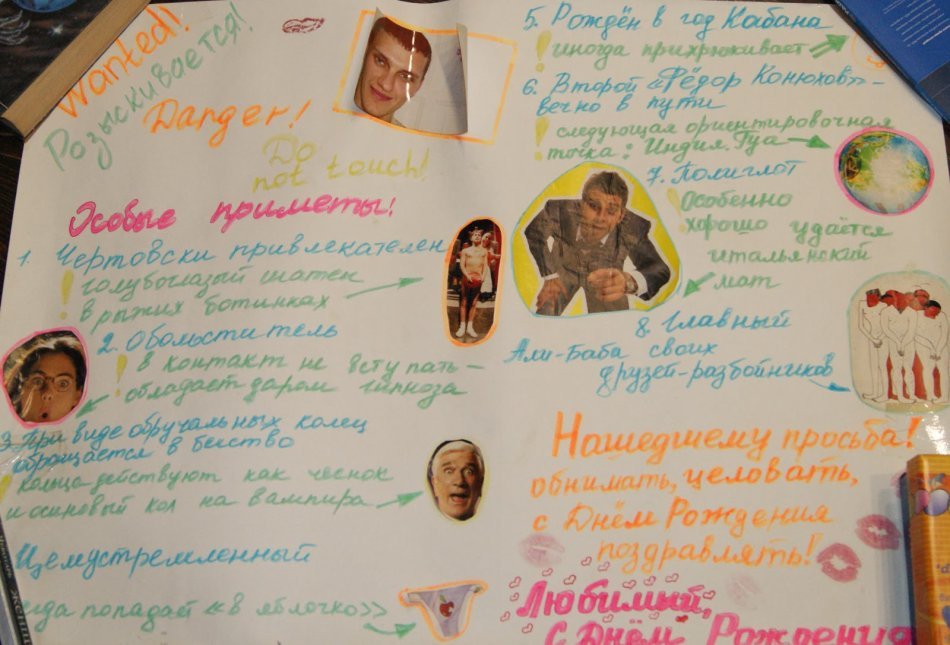 Wanted!
Розыскивается!
Danger!
Do
not touch!
Особые приметы!
1. Чертовски привлекателен
! голубоглазый шатен
в рыжих ботинках
2. Обольститель
! в контакт не вступать –
обладает даром гипноза
3. При виде обручальных колец
обращается в бегство
! Кольца действуют как чеснок
и осиновый кол на вампира
Целеустремленный
попадает «в яблочко»
5. Рождён в год Кабана
! иногда прихрюкивает
6. Второй «Фёдор Конюхов» –
вечно в пути
! следующая ориентировочная
точка: Индия, Гуа
7. Полиглот
! Особенно
хорошо удаётся
итальянский
мат
8. Главный
Али-Баба своих
друзей-разбойников
Нашедшему просьба!
обнимать, целовать,
с Днём Рождения
поздравлять!
Любимый,
с Днём Рождения